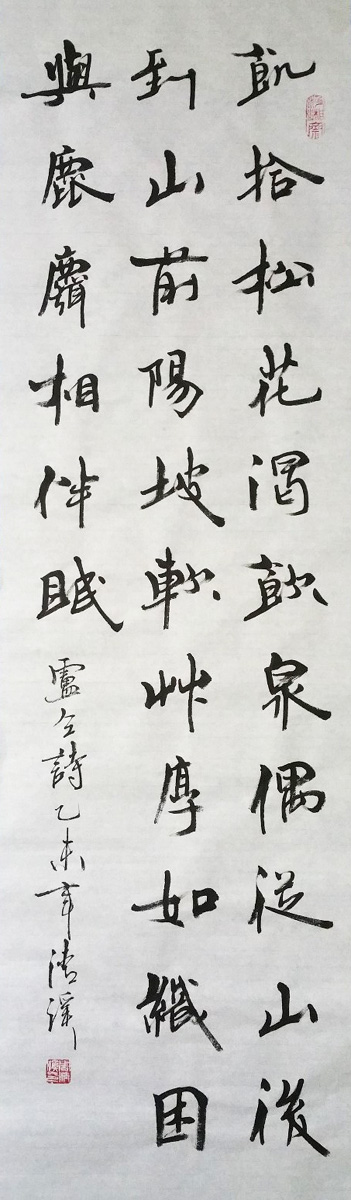 飢拾松花渴飲泉偶從山後
到山前陽坡軟艸厚如織困
與鹿麛相伴眠
盧仝詩乙未年